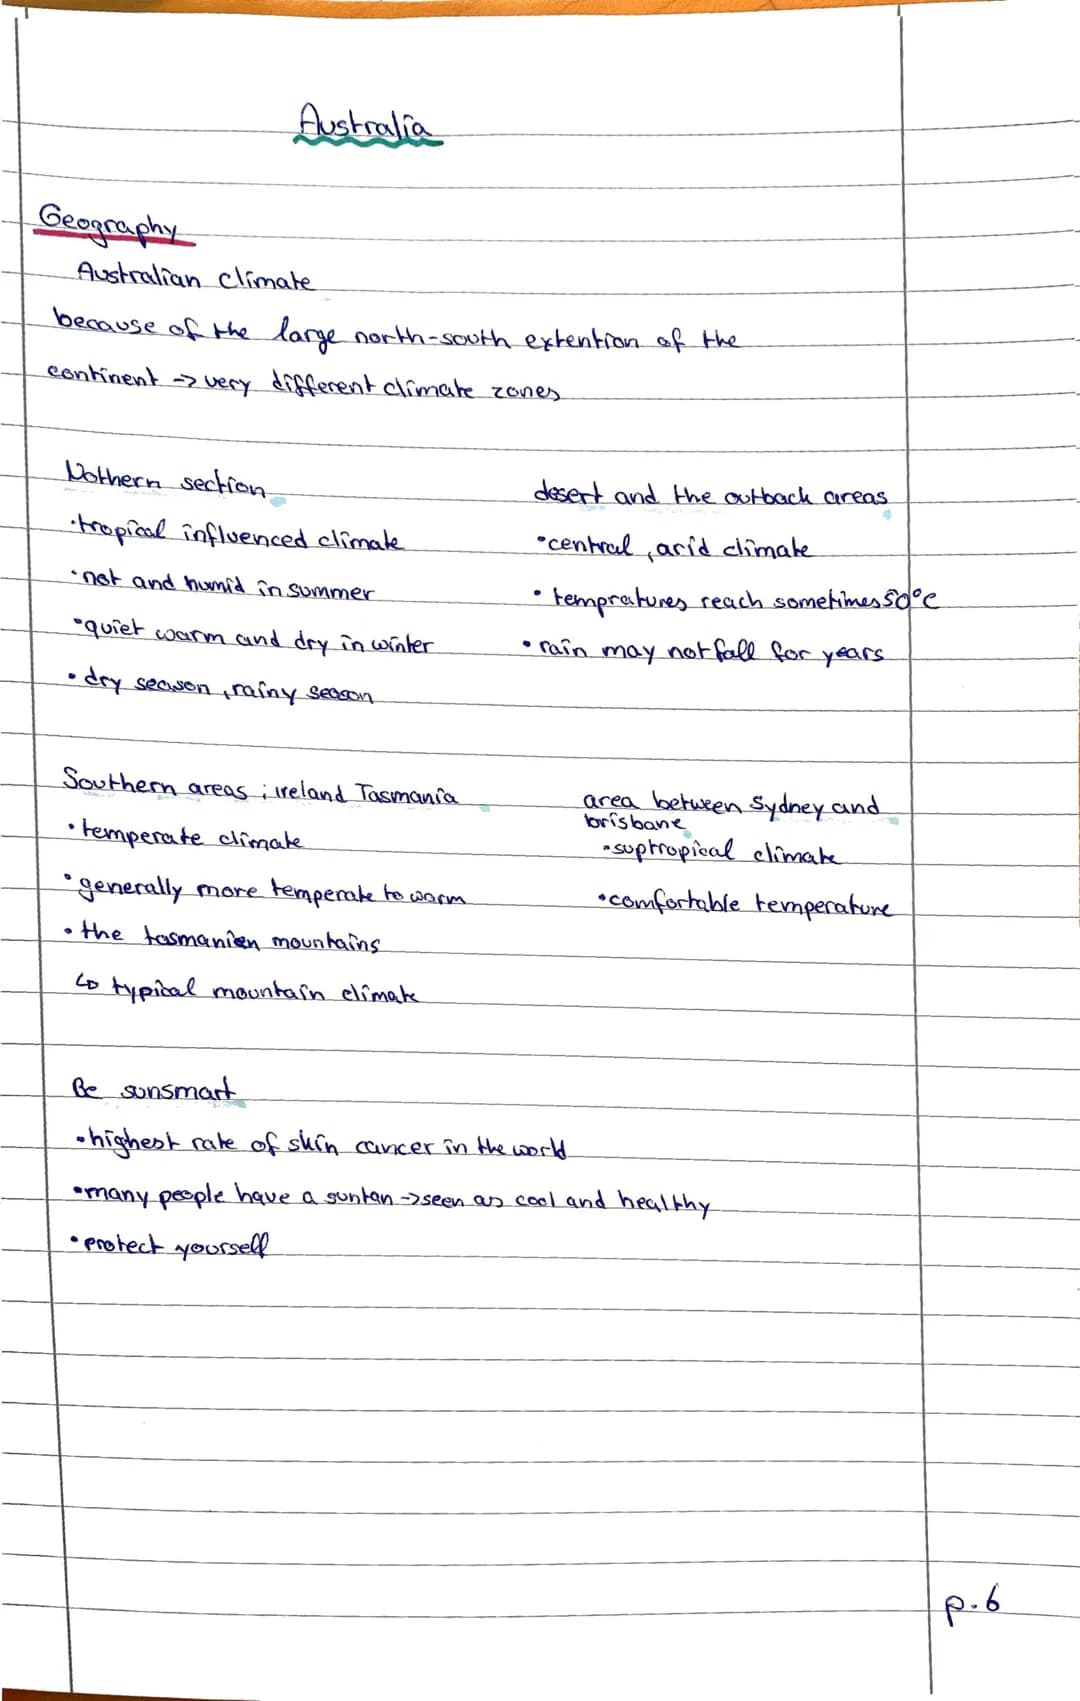 Australia
Geography
Australian climate
because of the large north-south extention of the
continent -> very different climate zones
Nothern section
•tropical influenced climate
•hot and humid in summer
•quiet warm and dry in winter
•dry season, rainy season
desert and the outback areas
•central, arid climate
•tempratures reach sometimes 50°C
•rain may not fall for years
Southern areas; ireland Tasmania
•temperate climate
•generally more temperate to warm
•the tasmanien mountains
↳ typical mountain climate
area between Sydney and
brisbane
•suptropical climate
•comfortable temperature
Be sunsmart
•highest rate of skin cancer in the world
•many people have a suntan -> seen as cool and healthy
•protect yourself
p.6